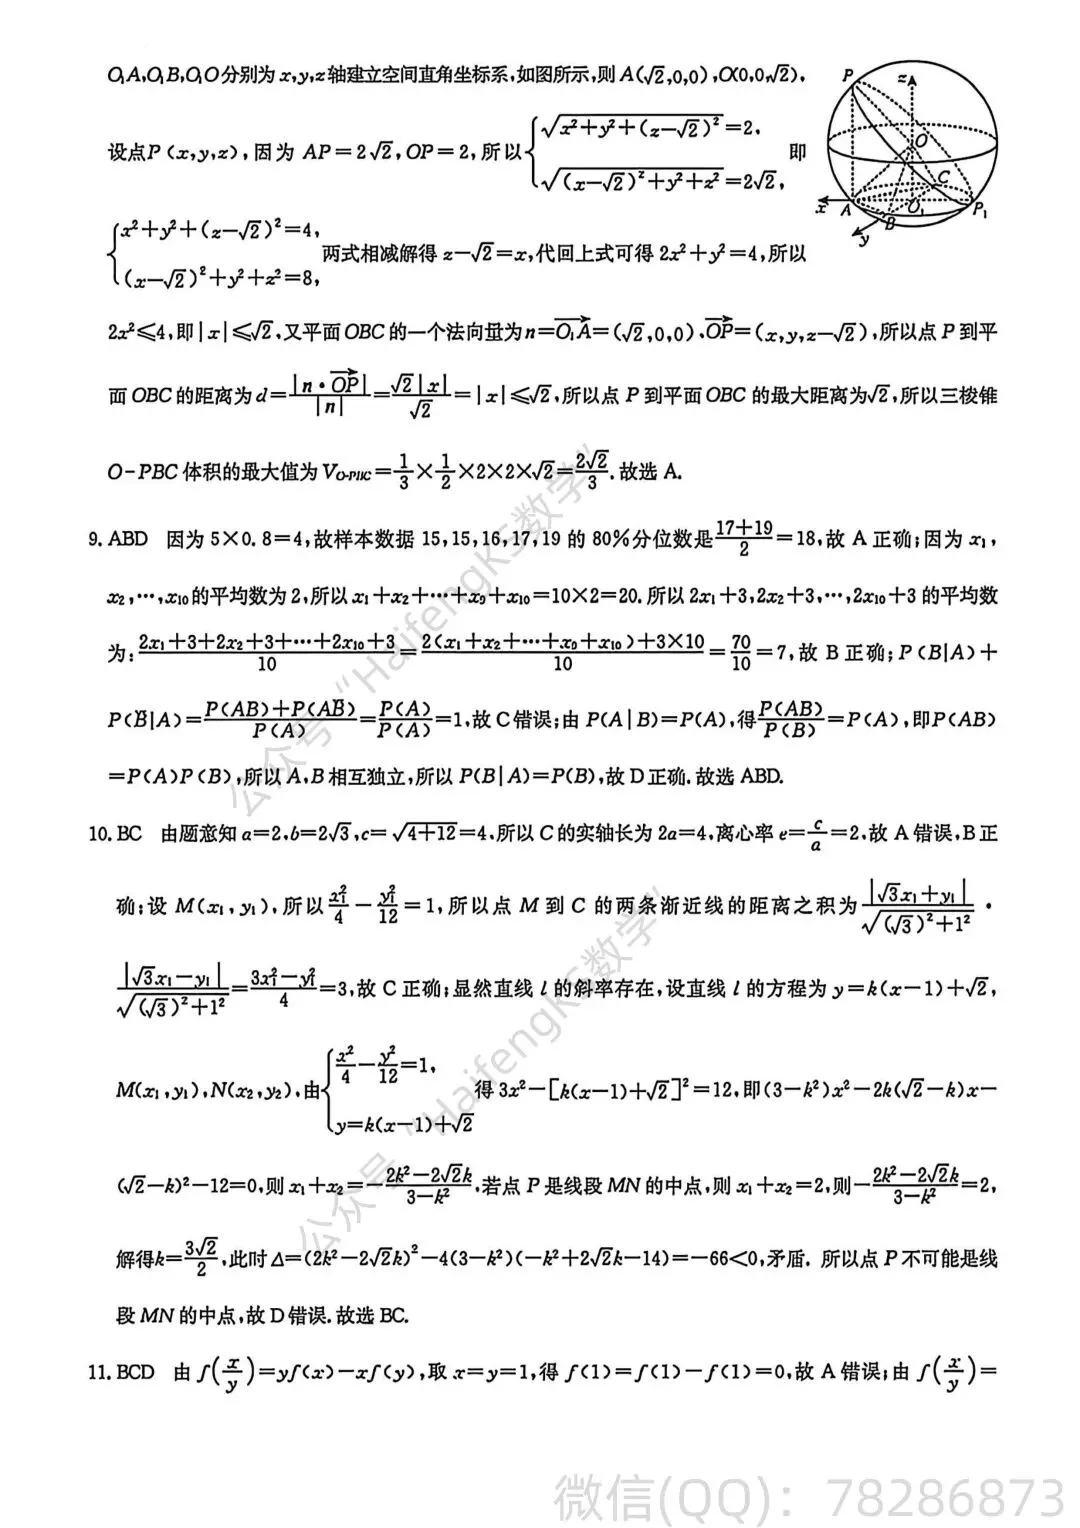 O₁A,O₁B,O₁O分别为 x,y,z 轴建立空间直角坐标系,如图所示,则 A(√2,0,0),O(0,0,√2),
设点P(x,y,z),因为 AP=2√2,OP=2,所以{√(x²+y²+(z-√2)²)=2, √((x-√2)²+y²+z²)=2√2, 即
{x²+y²+(z-√2)²=4, (x-√2)²+y²+z²=8, 两式相减解得 z-√2=x,代回上式可得 2x²+y²=4,所以
2x²≤4,即|x|≤√2,又平面OBC的一个法向量为n=O₁A→=(√2,0,0),OP→=(x,y,z-√2),所以点P到平
面OBC的距离为d=|n·OP→|/|n|=√2|x|/√2=|x|≤√2,所以点 P 到平面OBC 的最大距离为√2,所以三棱锥
O-PBC 体积的最大值为 V_{O-PBC}=1/3×1/2×2×2×√2=2√2/3.故选 A.
9. ABD 因为 5×0.8=4,故样本数据 15,15,16,17,19 的 80%分位数是(17+19)/2=18,故 A 正确;因为 x₁,
x₂,…,x₁₀的平均数为2,所以 x₁+x₂+…+x₉+x₁₀=10×2=20.所以 2x₁+3,2x₂+3,…,2x₁₀+3 的平均数
为:(2x₁+3+2x₂+3+…+2x₁₀+3)/10=(2(x₁+x₂+…+x₉+x₁₀)+3×10)/10=70/10=7,故 B 正确;P(B|A)+
P(B̄|A)=(P(AB)+P(AB̄))/P(A)=P(A)/P(A)=1,故C错误;由 P(A|B)=P(A),得P(AB)/P(B)=P(A),即P(AB)
=P(A)P(B),所以A,B相互独立,所以 P(B|A)=P(B),故D正确.故选 ABD.
10. BC 由题意知a=2,b=2√3,c=√(4+12)=4,所以C的实轴长为 2a=4,离心率 e=c/a=2,故 A 错误,B正
确;设 M(x₁,y₁),所以x₁²/4-y₁²/12=1,所以点 M 到 C 的两条渐近线的距离之积为|√3x₁+y₁|/√((√3)²+1²)·
|√3x₁-y₁|/√((√3)²+1²)=(3x₁²-y₁²)/4=3,故 C 正确;显然直线 l 的斜率存在,设直线 l 的方程为 y=k(x-1)+√2,
M(x₁,y₁),N(x₂,y₂),由{x²/4-y²/12=1, y=k(x-1)+√2 得 3x²-[k(x-1)+√2]²=12,即(3-k²)x²-2k(√2-k)x-
(√2-k)²-12=0,则x₁+x₂=-(2k²-2√2k)/(3-k²).若点 P 是线段MN的中点,则x₁+x₂=2,则-(2k²-2√2k)/(3-k²)=2,
解得k=3√2/2,此时Δ=(2k²-2√2k)²-4(3-k²)(-k²+2√2k-14)=-66<0,矛盾. 所以点 P不可能是线
段 MN 的中点,故D错误.故选 BC.
11. BCD 由 f(x/y)=yf(x)-xf(y),取 x=y=1,得 f(1)=f(1)-f(1)=0,故 A 错误;由 f(x/y)=
P
z
O
C
x
A
B
O₁
P₁
y
公众号“HaifengKS数学”
公众号“HaifengKS数学”
微信(QQ): 78286873